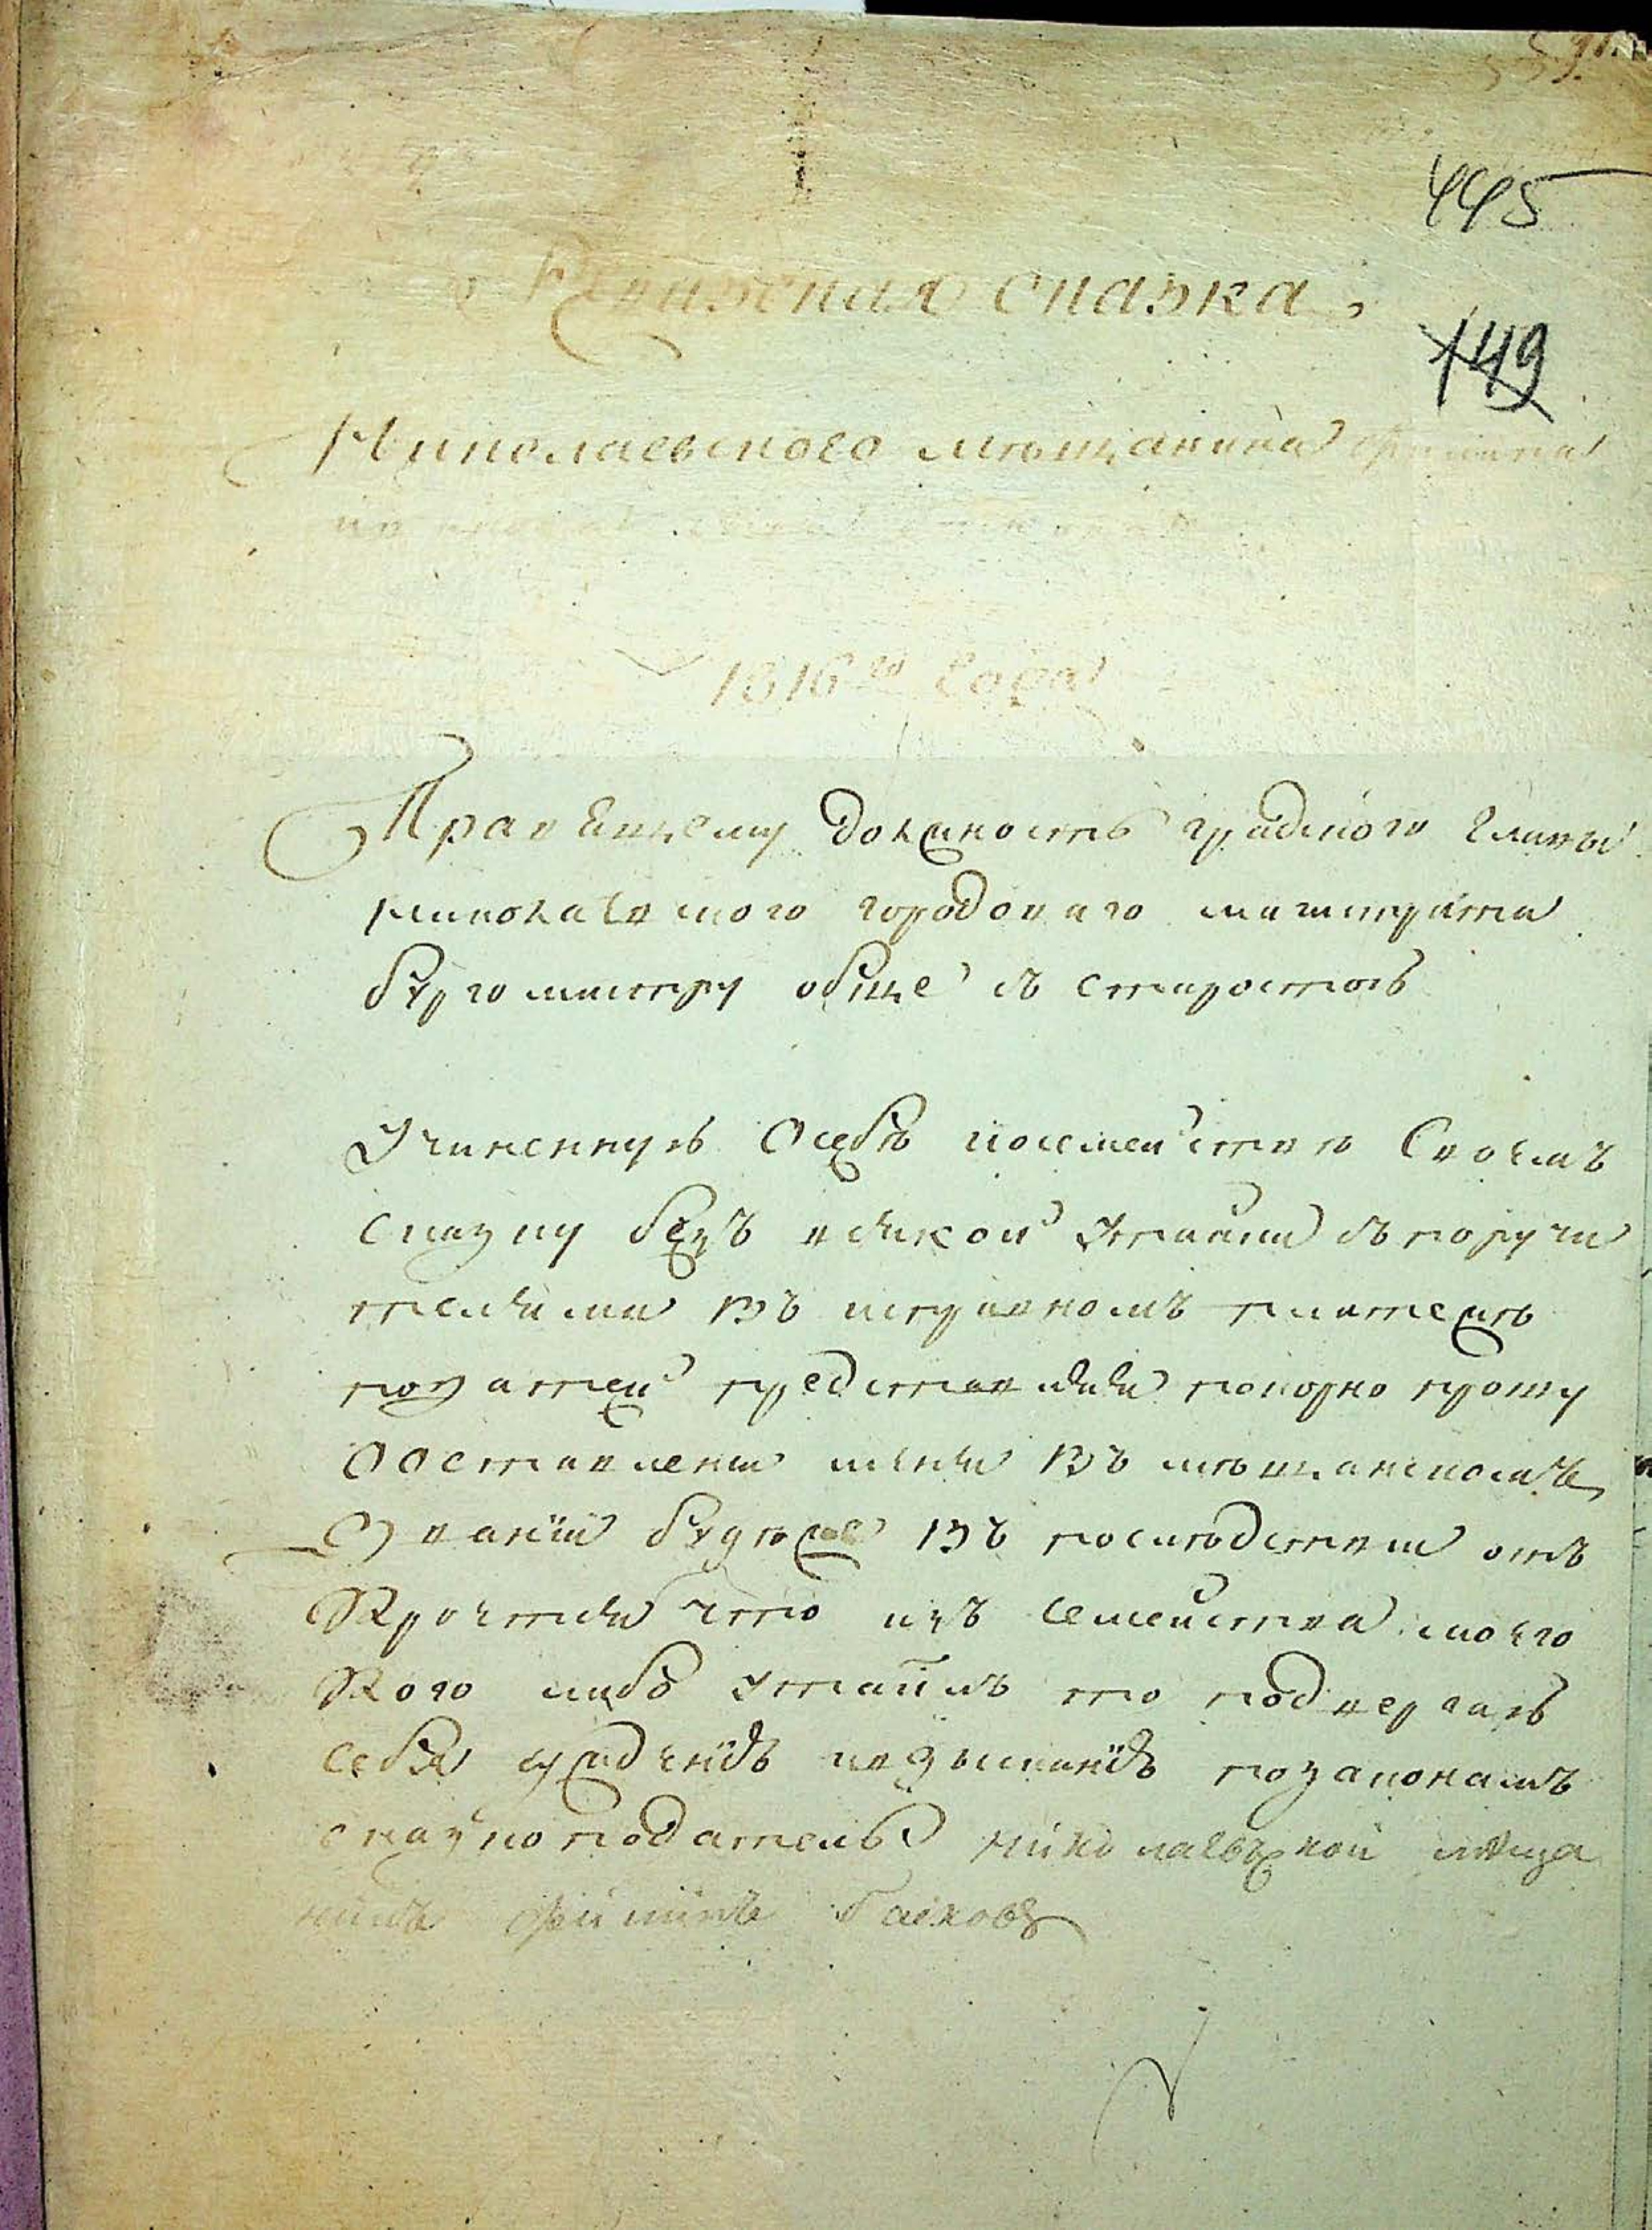 445
149
Ревизская сказка
Николаевского мѣщанина
1816го года
Правящему должность градского главы
николаевского городоваго магистрата
бургомистру обще съ старостою
Учиненную О себѣ посемейство Своемъ
сказку безъ всякой утайки съ поручи
телями въ исправномъ платежѣ
податей представляя покорно прошу
О оставлении меня въ мѣщанскомъ
Звании буде же въ последствии отъ
Кроется что изъ семейства моего
Кого либо утаилъ то подвергаю
себя суждению и взысканию позаконамъ
сказкоподатель николаевъской мѣща
нинъ